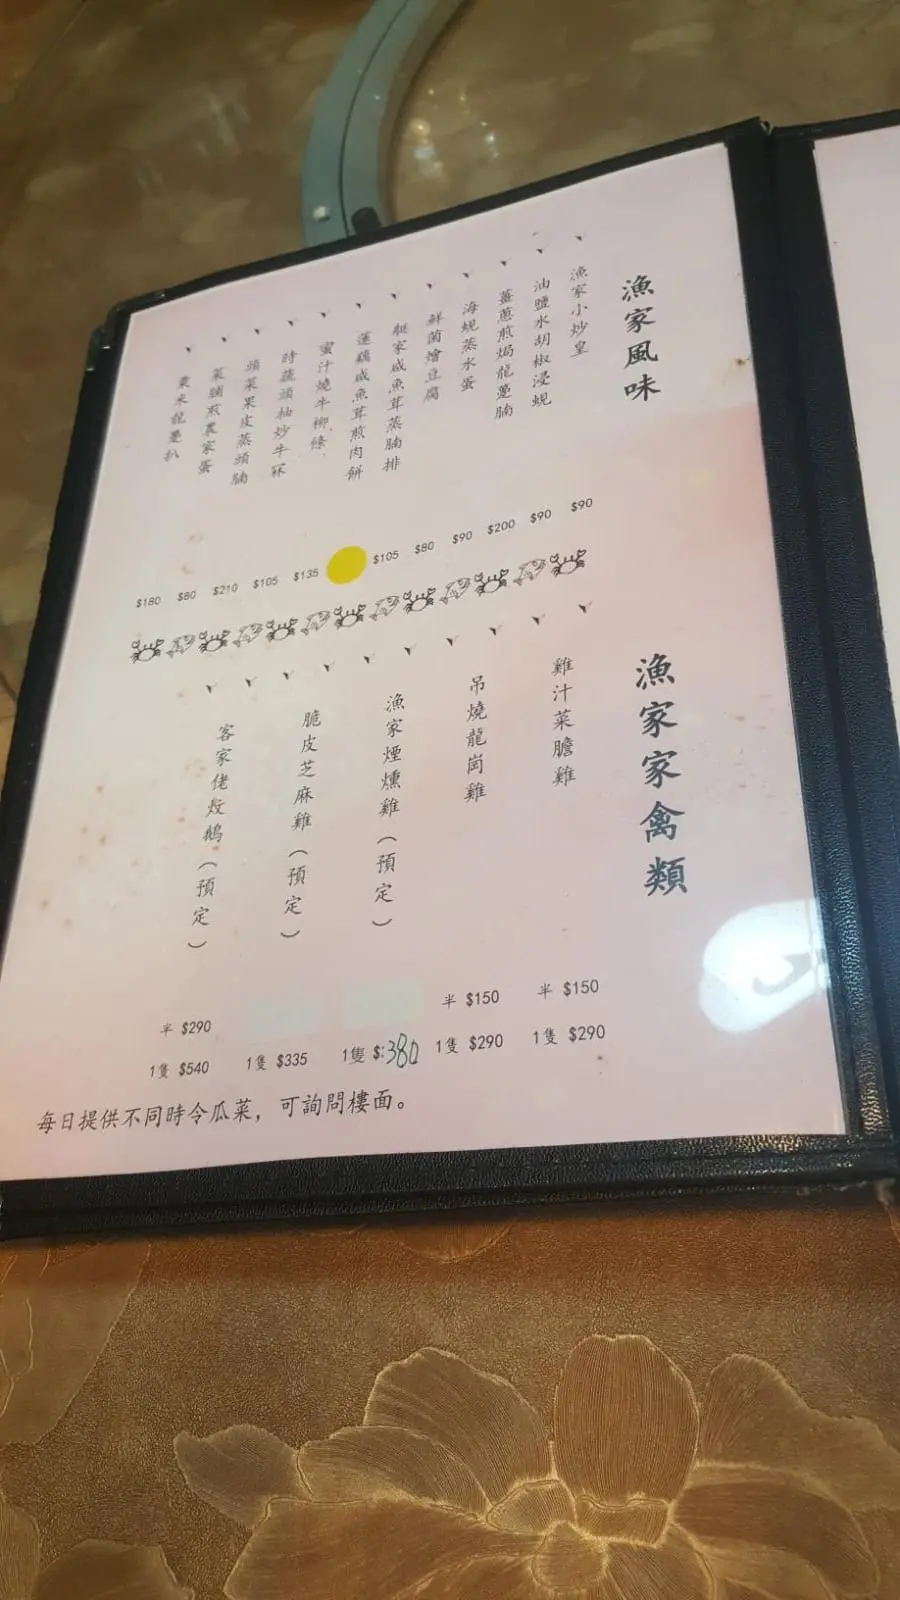 漁家風味
漁家小炒皇 $90
油鹽水胡椒浸蜆 $90
薑蔥煎焗龍躉腩 $200
海蜆蒸水蛋 $90
鮮菌燴豆腐 $80
艇家咸魚茸蒸腩排 $105
蓮藕咸魚茸煎肉餅
蜜汁燒牛柳條 $135
時蔬頭抽炒牛冧 $105
頭菜果皮蒸頭腩 $210
菜脯煎農家蛋 $80
粟米龍躉扒 $180
漁家家禽類
雞汁菜膽雞 半 $150 1隻 $290
吊燒龍崗雞 半 $150 1隻 $290
漁家煙燻雞（預定） 1隻 $:380
脆皮芝麻雞（預定） 1隻 $335
客家佬炆鵝（預定） 半 $290 1隻 $540
每日提供不同時令瓜菜，可詢問樓面。